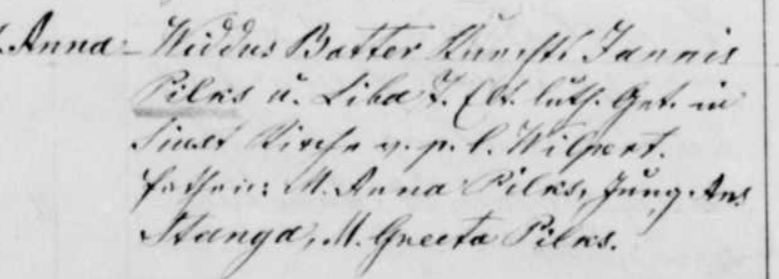 Anna Widdus Batter Knechts Jannis
Pilks u. Liba T. Elt. luth. Get. in
Kirche v. p. l. Wilpert.
M. Anna Pilks, Jung. Ans
Stanga, M. Greeta Pilks.